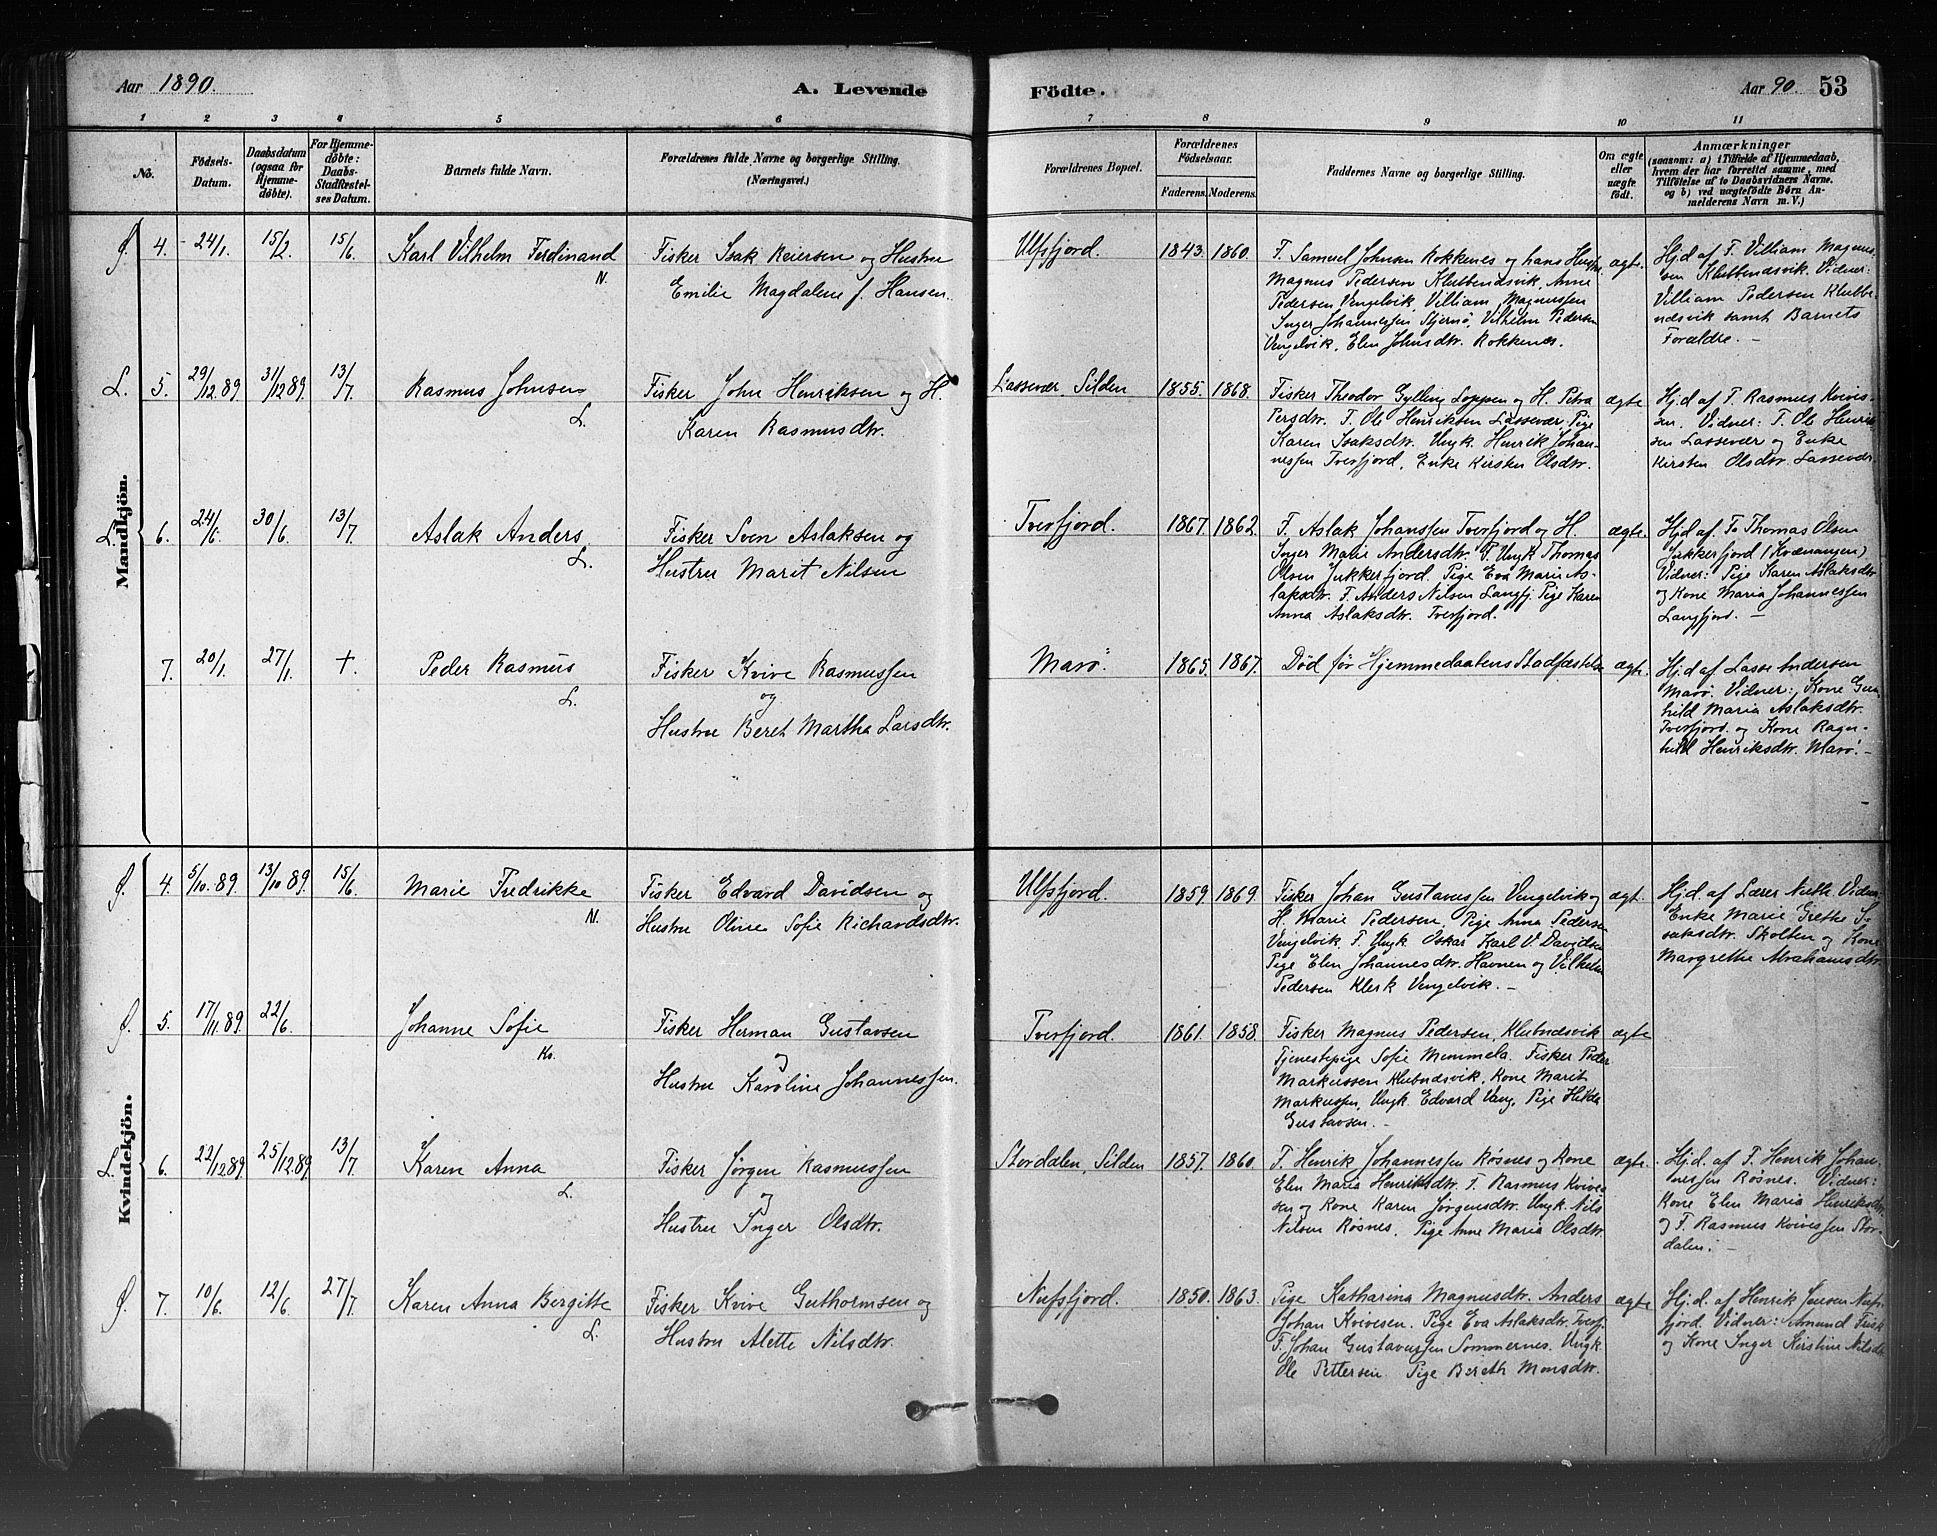 Aar 1890. A. Levende Födte. Aar 90. 53
1 2 3 4 5 6 7 8 9 10 11
No.
Födsels-
Datum.
Daabsdatum
(ogsaa for
Hjemme-
döbte).
For Hjemme-
döbte:
Daabs-
Stadfæstel-
ses Datum.
Barnets fulde Navn.
Forældrenes fulde Navne og borgerlige Stilling.
(Næringsvei.)
Forældrenes Bopæl.
Forældrenes
Födselsaar.
Faderens. Moderens.
Faddernes Navne og borgerlige Stilling.
Om ægte
eller
uægte
födt.
Anmærkninger
(saasom: a) i Tilfælde af Hjemmedaab,
hvem der har forrettet samme, med
Tilföielse af to Daabsvidners Navne.
og b) ved uægtefödte Börn An-
melderens Navn m. V.)
Mandkjön.
Ø. 4. 24/1. 15/2. 15/6. Karl Vilhelm Ferdinand
N.
Fisker Isak Reiersen og Hustru
Emilie Magdalene f. Hansen.
Ulfsfjord. 1843. 1860.
F. Samuel Johnsen Rokkenes og hans Hustru
Magnus Pedersen Klubbendsvik, Anne
Pedersen Vengelvik, Villiam Magnussen
Inger Johannessen Stjernö, Vilhelm Pedersen
Vengelvik, Elen Johnsdtr. Rokkenes.
ægte.
Hjd af F. Villiam Magnus-
sen Klubbendsvik. Vidner:
Villiam Pedersen Klubbe-
ndsvik samt Barnets
Forældre. -
L. 5. 29/12.89. 31/12.89. 13/7. Rasmus Johnsen
L.
Fisker John Henriksen og H.
Karen Rasmusdtr.
Lassevær, Silden 1855. 1868.
Fisker Theodor Gylling Loppen og H. Petra
Persdtr. F. Ole Henriksen Lassevær, Pige
Karen Isaksdtr. Ungk. Henrik Johan-
nessen Tverfjord, Enke Kirsten Olsdtr.
ægte
Hjd af F. Rasmus Kvives-
sen. Vidner: F. Ole Henrik-
sen Lassevær og Enke
Kirsten Olsdtr. Lassevær.
L. 6. 24/6. 30/6. 13/7. Aslak Anders
L.
Fisker Sven Aslaksen og
Hustru Marit Nilsen
Tverfjord. 1867. 1862.
F. Aslak Johanssen Tverfjord og H.
Inger Marie Andersdtr. F. Ungk Thomas
Olsen Jøkkerfjord. Pige Eva Marie As-
laksdtr. F. Anders Nilsen Langfj. Pige Karen
Anna Aslaksdtr. Tverfjord.
ægte.
Hjd af. Thomas Olsen
Jøkkerfjord (Kvænangen)
Vidner: Pige Karen Aslaksdtr
og Kone Maria Johannessen
Langfjord. -
7. 20/1. 27/1. +. Peder Rasmus
L.
Fisker Kvive Rasmussen
og
Hustru Beret Martha Larsdtr.
Marö. 1865. 1867.
Død før Hjemmedaabens Stadfæstelse
ægte.
Hjd af Lasse Andersen
Marö. Vidner: Kone Gun-
hild Maria Aslaksdtr.
Tverfjord. og Kone Ragn-
hild Henriksdtr. Marö. -
Kvindekjön.
Ø. 4. 5/10.89. 13/10 89. 15/6. Marie Fredrikke
N.
Fisker Edvard Davidsen og
Hustru Oline Sofie Richardsdtr.
Ulfsfjord. 1859. 1869.
Fisker Johan Gustavussen Vengelvik og
H. Marie Pedersen, Pige Anna Pedersen
Vengelvik. F. Ungk Oskar Karl V. Davidsen
Pige Elen Johannesdtr. Havnen og Vilhelm
Pedersen Klerk Vengelvik. -
ægt.
Hjd. af Lærer Vidner
Enke Marie Grethe I-
saksdtr. Skolten og Kone
Margrethe Abrahamsdtr.
Ø. 5. 17/11.89. 22/6. Johanne Sofie
Kv.
Fisker Herman Gustavsen
og
Hustru Karoline Johannessen.
Tverfjord. 1861. 1858.
Fisker Magnus Pedersen, Klubndsvik
Tjenestepige Sofie Memmela. Fisker Peder
Markussen Klubndsvik, Kone Marit
Markussen, Ungk. Edvard Vang, Pige Hilda
Gustavsen. -
ægte
L. 6. 22/12 89. 25/12.89. 13/7. Karen Anna
L.
Fisker Jørgen Rasmussen
og
Hustru Inger Olsdtr.
Stordalen, Silden 1857. 1860.
F. Henrik Johannessen Røsnes og Kone
Elen Maria Henriksdtr. F. Rasmus Kvive-
sen og Kone Karen Jørgensdtr. Ungk. Nils
Nilsen Røsnes, Pige Anne Maria Olsdtr.
ægte.
Hjd. af F. Henrik Johan-
nessen Røsnes. Vidner:
Kone Elen Maria Henriksdtr.
og F. Rasmus Kvivessen Stor-
dalen. -
Ø. 7. 10/6. 12/6. 27/7. Karen Anna Bergitte
L.
Fisker Kvive Guthormsen og
Hustru Alette Nilsdtr.
Nufsfjord. 1850. 1863.
Pige Katharina Magnusdtr. Anders
Johan Kvivesen. Pige Eva Aslaksdtr. Tverfj.
F. Johan Gustavussen Sommernes. Ungk.
Ole Pettersen. Pige Bereth Monsdtr.
ægte
Hjd. af Henrik Jensen Nufs-
fjord. Vidner: Amund Frisk
og Kone Inger Kirstine Nilsdtr